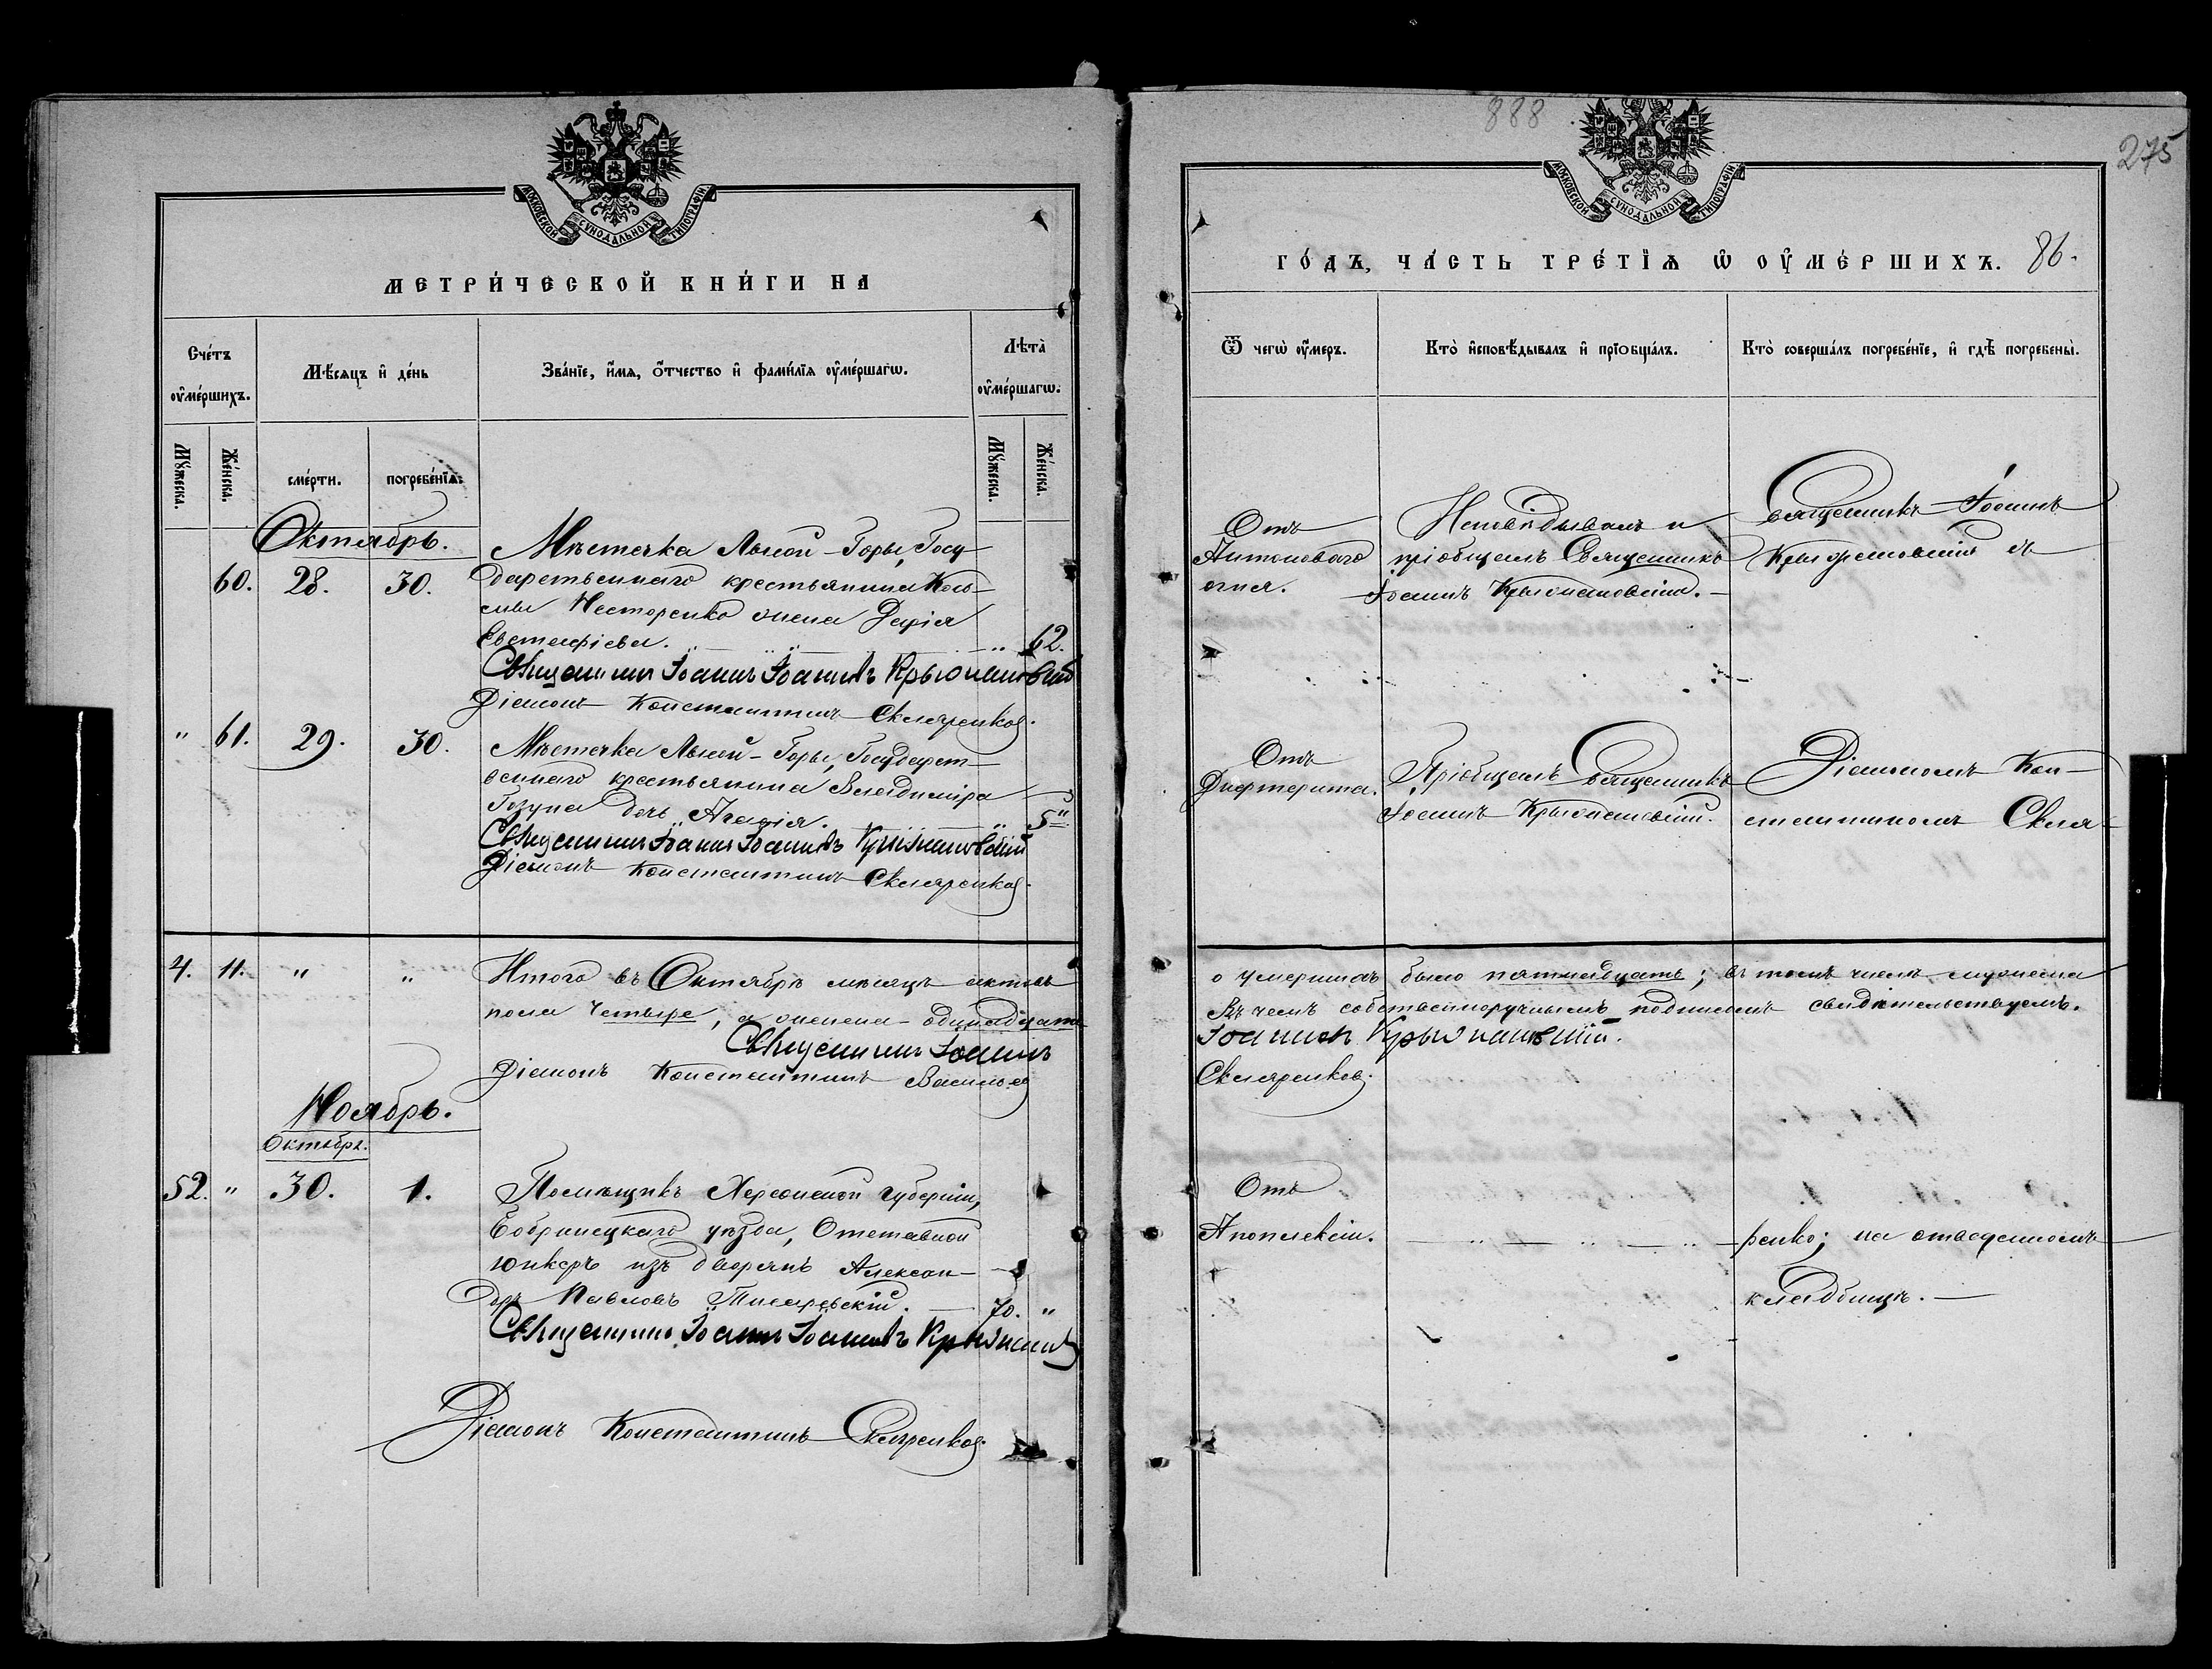 888
275
МОСКОВСКОЙ СѴНОДАЛЬНОЙ ТИПОГРАФІИ
МЕТРИ́ЧЕСКОЙ КНИ́ГИ НА
Сче́тъ ᲂу҆ме́ршихъ.
Мѣ́сяцъ и҆ де́нь
Зва́нїе, и҆́мѧ, ѻ҆́тчество и҆ фами́лїѧ ᲂу҆ме́ршагѡ.
Лѣта̀ ᲂу҆ме́ршагѡ.
Мꙋ́жеска.
Же́нска.
сме́рти.
погребе́нїѧ.
Мꙋ́жеска.
Же́нска.
Октябрь.
60. 28. 30.
Мѣстечка Лысой-Горы, Госу
дарственнаго крестьянина Кось
мы Несторенко жена Дарія
Евстафіева. 62.
Священникъ Іоаннъ Іоанновъ Крыжановскій
Діаконъ Константинъ Скляренковъ.
" 61. 29. 30.
Мѣстечка Лысой-Горы, Государст-
веннаго крестьянина Владиміра
дочь Агафія. 5
Священникъ Іоаннъ Іоанновъ Крыжановскій
Діаконъ Константинъ Скляренковъ.
4. 11. " "
Итого въ Октябрѣ мѣсяцѣ мужск
пола четыре, а женска - одинадцать
Священникъ Іоаннъ
Діаконъ Константинъ Васильев
Ноябрь.
Октябрь.
52. " 30. 1.
Помѣщикъ Херсонской губерніи,
Бобринецкаго уѣзда, Отставной
юнкеръ изъ дворянъ Алексан-
дръ Павловъ Писаревскій. 70. "
Священникъ Іоаннъ Іоанновъ Крыжановск
Діаконъ Константинъ Скляренковъ.
МОСКОВСКОЙ СѴНОДАЛЬНОЙ ТИПОГРАФІИ
ГО́ДЪ, ЧА́СТЬ ТРЕ́ТЇѦ Ѡ҆ ОУ҆МЕ́РШИХЪ. 86.
Ѿ чегѡ̀ ᲂу҆́меръ.
Кто̀ и҆сповѣ́дывалъ и҆ прїѻбща́лъ.
Кто̀ соверша́лъ погребе́нїе, и҆ гдѣ̀ погребены̀.
Отъ
Антонового
огня.
Исповѣдывалъ и
пріобщалъ Священникъ
Іоаннъ Крыжановскій.
Священникъ Іоаннъ
Крыжановскій съ
Отъ
Дифтерита.
Пріобщалъ Священникъ
Іоаннъ Крыжановскій.
Діакономъ Кон-
стантиномъ Скля-
о умершихъ было пятнадцать; въ томъ числѣ мужеска
Въ чемъ собственноручнымъ подписомъ свидѣтельствуемъ.
Іоанновъ Крыжановскій.
Скляренковъ.
Отъ
Апоплексіи.
ренко; на отведенномъ
кладбищѣ.